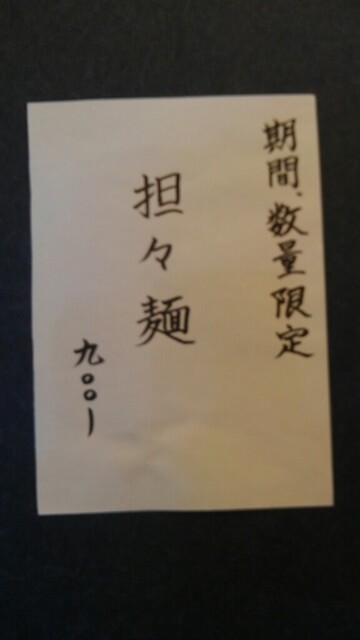 期間、数量限定
担々麺
九〇〇ー